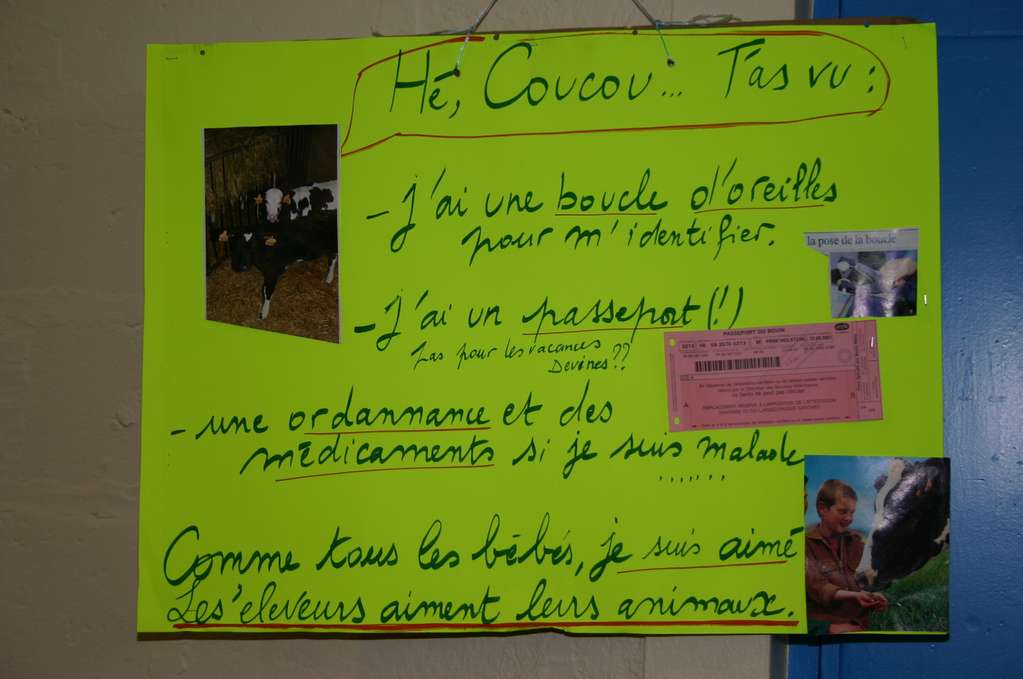 Hé, Coucou... T'as vu :
- j'ai une boucle d'oreilles
pour m'identifier.
la pose de la boucle
- j'ai un passeport (!)
Pas pour les vacances
Devines ??
PASSEPORT DU BOVIN
- une ordannance et des
médicaments si je suis malade
.......
Comme tous les bébés, je suis aimé
Les éleveurs aiment leurs animaux.